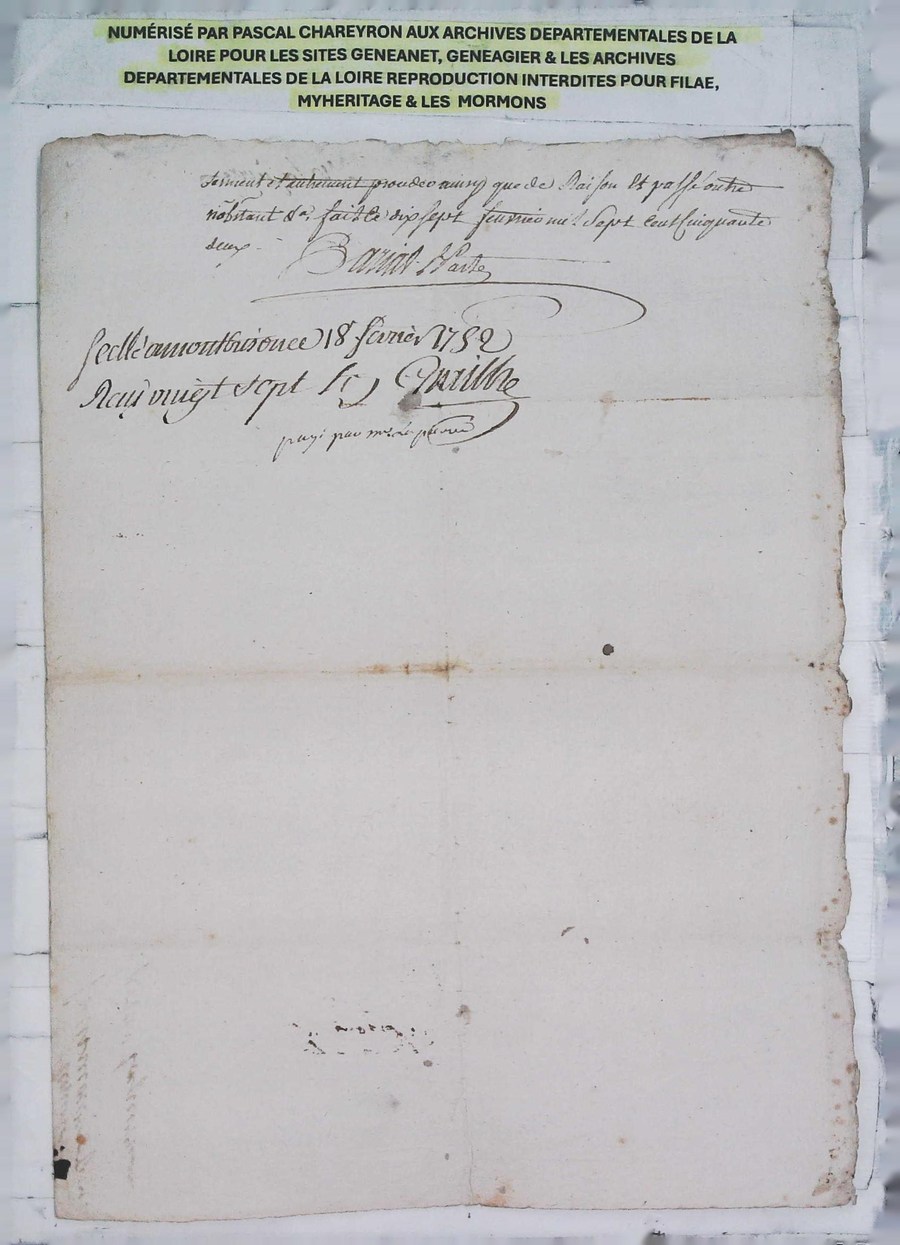 NUMÉRISÉ PAR PASCAL CHAREYRON AUX ARCHIVES DEPARTEMENTALES DE LA
LOIRE POUR LES SITES GENEANET, GENEAGIER & LES ARCHIVES
DEPARTEMENTALES DE LA LOIRE REPRODUCTION INTERDITES POUR FILAE,
MYHERITAGE & LES MORMONS
serment et que de Raison Et passé outre
nobstant &a. fait le dix sept feuvrier mil Sept Cent Cinquante
deux
scellé a montbrison ce 18 fevrier 1752
Reçu vingt sept
payé par mr.